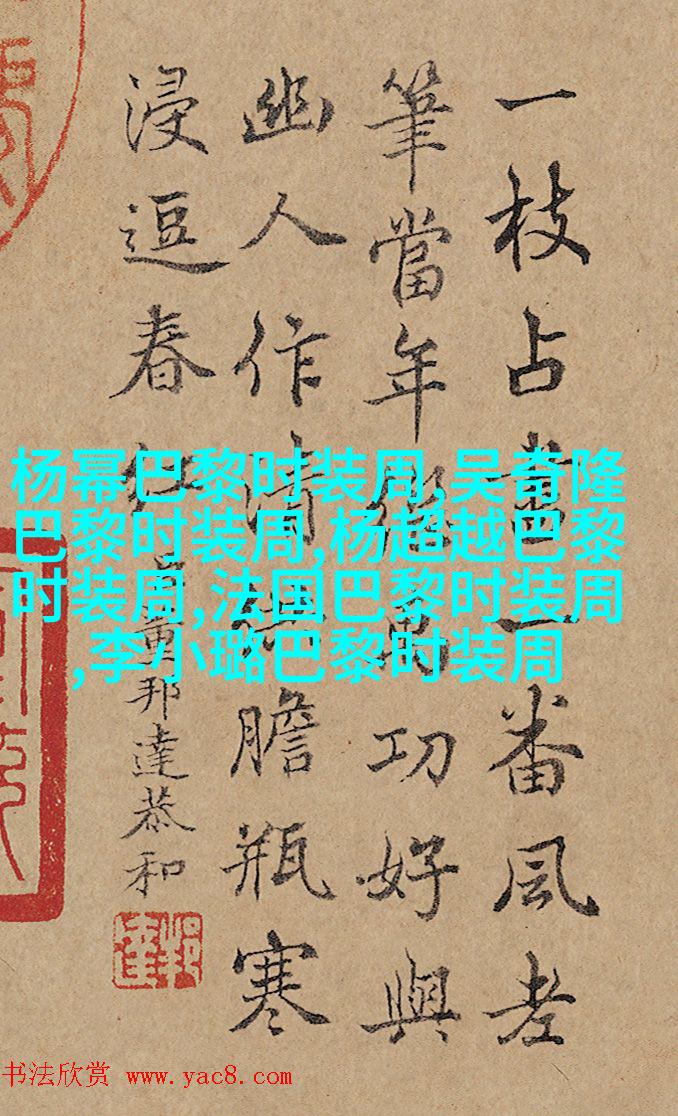 一枝占一番風老
筆當年功好與
幽人作清膽瓶寒
浸逗春紅
臣董邦達恭和
邦達
杨幂巴黎时装周,吴奇隆
巴黎时装周,杨超越巴黎
时装周,法国巴黎时装周
,李小璐巴黎时装周
书法欣赏 www.yac8.com